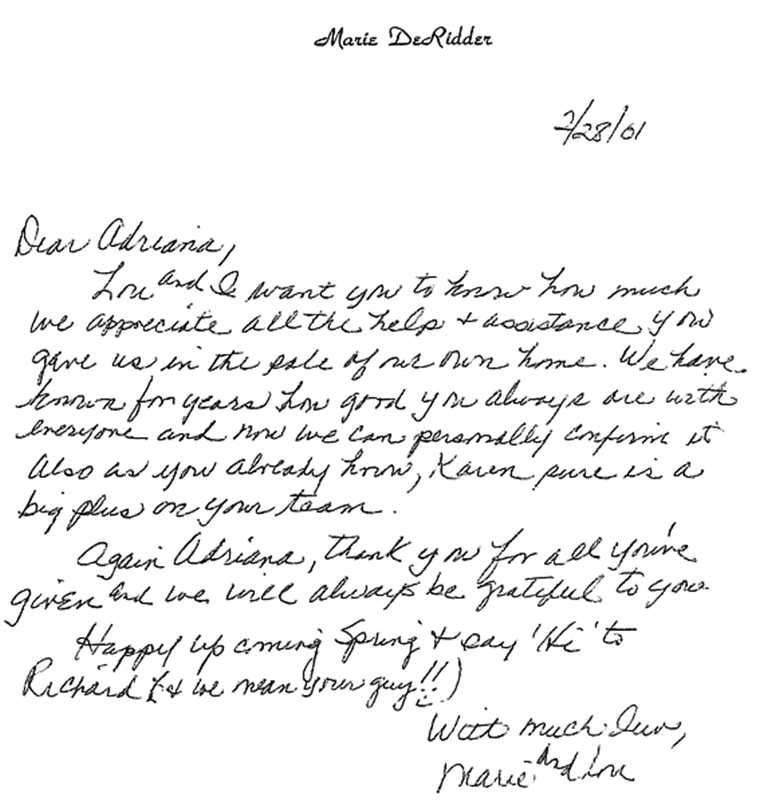 Marie DeRidder
2/28/01
Dear Adriana,
Lou and I want you to know how much
we appreciate all the help + assistance you
gave us in the sale of our own home. We have
known for years how good you always are with
everyone and now we can personally confirm it
Also as you already know, Karen sure is a
big plus on your team.
Again Adriana, thank you for all you've
given and we will always be grateful to you.
Happy up coming Spring + say 'Hi' to
Richard (+ we mean your guy!!)
With much love,
Marie and Lou